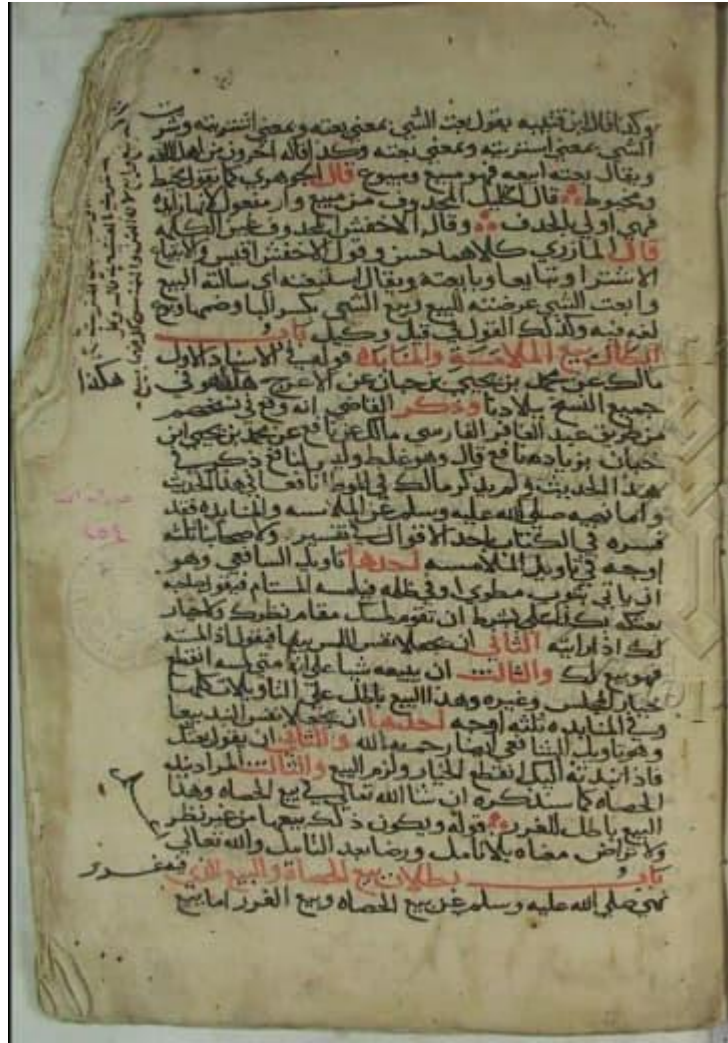 وكذا قال ابن قتيبه يقول بعت الشي بمعني بعته وبمعني اشتريته وشريت
الشي بمعني اشتريته وبمعني بعته وكذا قاله اخرون من اهل اللغه
ويقال بعته ابيعه فهو مبيع ومبيوع قال الجوهري كما يقول مخيط
ومخيوط قال الخليل المحذوف من مبيع واو مفعول لانها زايده
فهي اولي بالحذف وقال الاخفش المحذوف عين الكلمه
قال المازري كلاهما حسن وقول الاخفش اقيس والابتياع
الاشترا وتبايعا وبايعته ويقال استبعته اي سالته البيع
وابعت الشي عرضته للبيع وبيع الشي بكسر البا وضمها وبوع
لغه فيه وكذلك القول في قيل وكيل باب
ابطال بيع الملامسة والمنابذة قوله في الاسناد الاول
مالك عن محمد بن يحيي بن حبان عن الاعرج هكذا هو في
جميع النسخ ببلادنا وذكر القاضي انه وقع في نسختهم
من طريق عبد الغافر الفارسي مالك عن نافع عن محمد بن يحيي ابن
حبان بزياده نافع قال وهو غلط وليس لنافع ذكر في
هذا الحديث ولم يذكر مالك في الموطا نافعا في هذا الحديث
واما نهيه صلي الله عليه وسلم عن الملامسه والمنابذه فقد
فسره في الكتاب باحد الاقوال في تفسيره ولاصحابنا ثلثه
اوجه في تاويل الملامسه احدها تاويل الشافعي وهو
ان ياتي بثوب مطوي او في ظلمه فيلمسه المستام فيقول صاحبه
بعتكه بكذا علي شرط ان تقوم لمسك مقام نظرك ولا خيار
لك اذا رايته الثاني ان يجعلا نفس اللمس بيعا فيقول اذا لمسته
فهو بيع لك والثالث ان يبيعه شيا علي انه متي لمسه انقطع
خيار المجلس وغيره وهذا البيع باطل علي التاويلات كلها
وفي المنابذه ثلثه اوجه احدها ان يجعلا نفس النبذ بيعا
وهو تاويل الشافعي ايضا رحمه الله والثاني ان يقول بعتك
فاذا نبذته اليك انقطع الخيار ولزم البيع والثالث المراد نبذ
الحصاه كما سنذكره ان شا الله تعالي في بيع الحصاه وهذا
البيع باطل للغرر قوله ويكون ذلك بيعهما من غير نظر
ولا تراض معناه بلا تامل ورضا بعد التامل والله تعالي
باب بطلان بيع الحصاة والبيع الذي فيه غرر
نهي صلي الله عليه وسلم عن بيع الحصاه وبيع الغرر اما بيع
هكذا